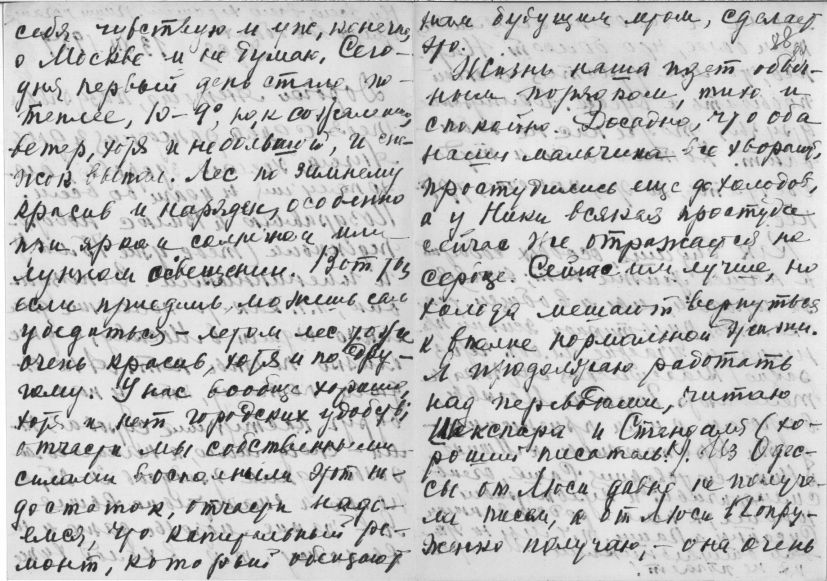 себя чувствую и уже, конечно,
о Москве и не думаю. Сего-
дня первый день стало по-
теплее, 10-9°, но, к сожалению,
ветер, хотя и небольшой, и сне-
жок выпал. Лес по зимнему
красив и наряден, особенно
при ярком солнечном или
лунном освещении. Вот,
если приедешь, можешь сам
убедиться – летом лес тоже
очень красив, хотя и по дру-
гому. У нас вообще хорошо,
хотя и нет городских удобств,
отчасти мы собственными
силами восполнили этот не-
достаток, отчасти наде-
емся, что капитальный ре-
монт, который обещают
нам будущим летом, сделает
это.
Жизнь наша идет обыч-
ным порядком, тихо и
спокойно. Досадно, что оба
наши мальчика все хворают,
простудились еще до холодов,
а у Ники всякая простуда
сейчас же отражается на
сердце. Сейчас им лучше, но
холода мешают вернуться
к вполне нормальной жизни.
Я продолжаю работать
над переводами, читаю
Шекспира и Стендаля (хо-
роший писатель!). Из Одес-
сы от Люси давно не получа-
ла писем, а от Люси Попру-
женко получаю, – она очень